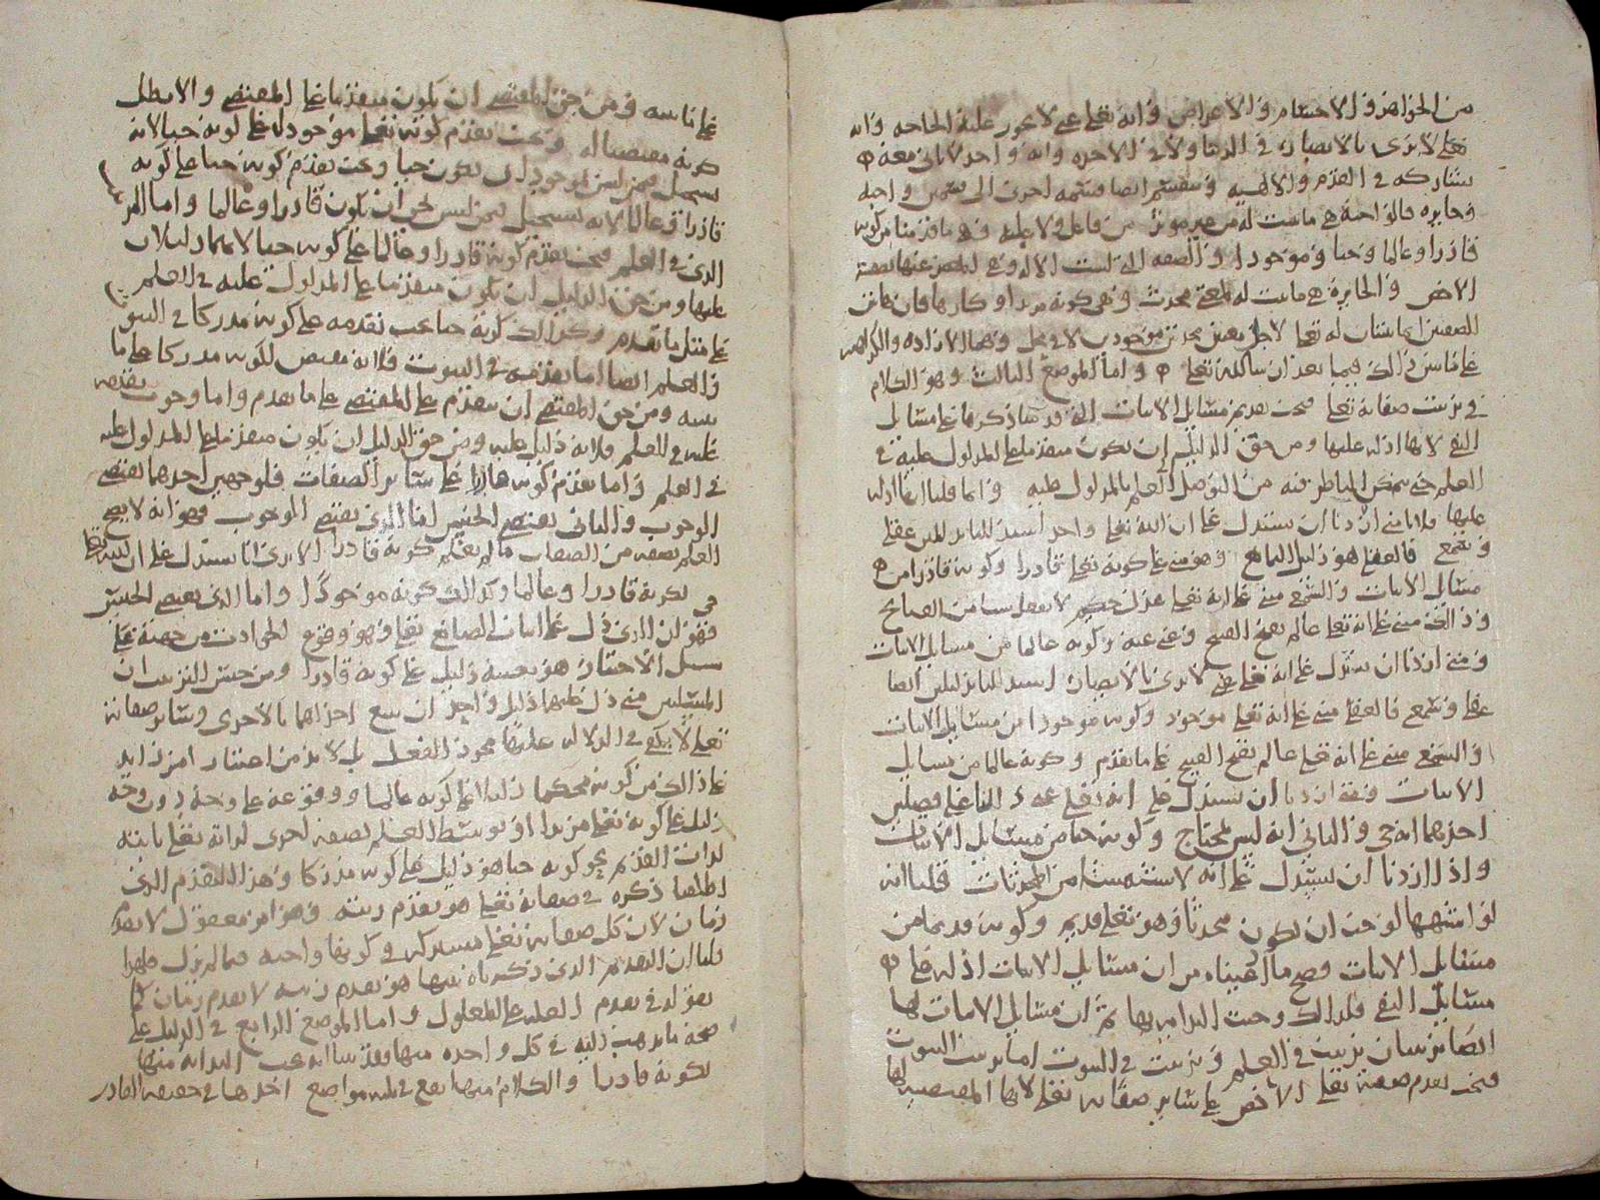 من الجواهر والاجسام والاعراض وانه تعالى غني لا يجوز عليه الحاجة وانه
تعلى لا يرى بالابصار في الدنيا ولا في الاخره وانه واحد لا ثاني معه
يشاركه في القدم والالهيه وينقسم ايضا قسمه اخرى الى قسمين واجبه
وجايزه فالواجبة هي ما يثبت له من غير مؤثر من فاعل ولا علة وهي ما قدمنا من كونه
قادرا وعالما وحيا وموجودا والصفه التي ليست الا له وهي المعبر عنها بصفته
الاخص والجايزة هي ما يثبت له لمعنى محدث وهي كونه مريدا وكارها فان هاتين
الصفتين انما يثبتان له تعالى لاجل معنيين محدثين موجودين لا في محل وهما الارادة والكراهه
على ما سنبين ذلك فيما بعد ان شا الله تعالى واما الموضع الثالث وهو الكلام
في ترتيب صفاته تعالى فيجب تقديم مسايل الاثبات التي قد منا ذكرها على مسايل
النفي لانها ادلة عليها ومن حق الدليل ان يكون متقدما على المدلول عليه في
العلم حتى يتمكن الناظر فيه من التوصل الى العلم بالمدلول عليه وانما قلنا انها ادلة
عليها لانا متى اردنا ان نستدل على ان الله تعالى واحد استدللنا بدليلين عقلي
وسمعي فالعقلي هو دليل التمانع وهو مبني على كونه تعالى قادرا وكونه قادرا من
مسايل الاثبات والسمعي مبني على انه تعالى عدل حكيم لا يفعل شيا من القبايح
وذلك مبني على انه تعالى عالم بقبح القبيح وغني عنه وكونه عالما من مسايل الاثبات
ومتى اردنا ان نستدل على انه تعالى لا يرى بالابصار استدللنا بدليلين ايضا
عقلي وسمعي فالعقلي مبني على انه تعالى موجود وكونه موجودا من مسايل الاثبات
والسمعي مبني على انه تعالى عالم بقبح القبيح على ما تقدم وكونه عالما من مسايل
الاثبات ومتى اردنا ان نستدل على انه تعالى غني دللنا على فصلين
احدهما انه حي والثاني انه ليس بمحتاج وكونه حيا من مسايل الاثبات
واذا اردنا ان نستدل على انه لا يشبه شيا من المحدثات قلنا انه
لو اشبهها لوجب ان يكون محدثا وهو تعالى قديم وكونه قديما من
مسايل الاثبات فصح ما ادعيناه من ان مسايل الاثبات ادلة على
مسايل النفي فلذلك وجبت البداية بها ثم ان مسايل الاثبات لها
ايضا ترتيبان ترتيب في العلم وترتيب في الثبوت اما ترتيب الثبوت
فيجب تقدم صفته تعالى الاخص على ساير صفاته تعالى لانها المقتضيه لها
على ما نبينه ومن حق المقتضي ان يكون متقدما على المقتضى والا بطل
كونه مقتضيا له ويجب تقدم كونه تعالى موجودا على كونه حيا لانه
يستحيل فيمن ليس بموجود ان يكون حيا ويجب تقدم كونه حيا على كونه
قادرا وعالما لانه يستحيل فيمن ليس بحي ان يكون قادرا وعالما واما الترتيب
الذي في العلم فيجب تقدم كونه قادرا وعالما على كونه حيا لانهما دليلان
عليها ومن حق الدليل ان يكون متقدما على المدلول عليه في العلم
على مثل ما تقدم وكذلك كونه حيا يجب تقدمه على كونه مدركا في الثبوت
والعلم ايضا اما تقدمه في الثبوت فلانه مقتض لكونه مدركا على ما
نبينه ومن حق المقتضي ان يتقدم على المقتضى على ما تقدم واما وجوب تقدمه
عليه في العلم فلانه دليل عليه ومن حق الدليل ان يكون متقدما على المدلول عليه
في العلم واما تقدم كونه قادرا على ساير الصفات فلوجهين احدهما يقتضي
الوجوب والثاني يقتضي الحسن اما الذي يقتضي الوجوب فهو انه لا يصح
العلم بصفه من الصفات ما لم يعلم كونه قادرا الا ترى انا نستدل على ان الله تعالى
حي لكونه قادرا وعالما وكذلك كونه موجودا واما الذي يقتضي الحسن
فهو ان الذي دل على اثبات الصانع تعالى وهو وقوع الحوادث من جهته على
سبيل الاختيار هو بعينه دليل على كونه قادرا ومن حسن الترتيب ان
المسئلتين متى دل عليهما دليل واحد ان يتبع احداهما بالاخرى وساير صفاته
تعلى لا يكفي في الدلاله عليها مجرد الفعل بل لا بد من اعتبار امر زايد
على ذلك من كونه محكما دليلا على كونه عالما ووقوعه على وجه دون وجه
دليل على كونه تعالى مريدا او توسط العلم بصفه اخرى لذاته تعالى بانيه
لذات القديم نحو كونه حيا هو دليل على كونه مدركا وهذا التقدم الذي
اطلقنا ذكره في صفاته تعالى هو تقدم رتبه وهو امر معقول لا تقدم
زمان لان كل صفاته تعالى مشتركه في كونها واجبه فيما لم يزل فلهذا
قلنا ان التقدم الذي ذكرناه بينها هو تقدم رتبه لا تقدم زمان كما
نقوله في تقدم العلة على المعلول واما الموضع الرابع في الدليل على
صحة ما يذهب اليه في كل واحده منها وقد بينا انه يجب البداية منها
لكونه قادرا والكلام منها يقع في ثلثه مواضع احدها في حقيقه القادر